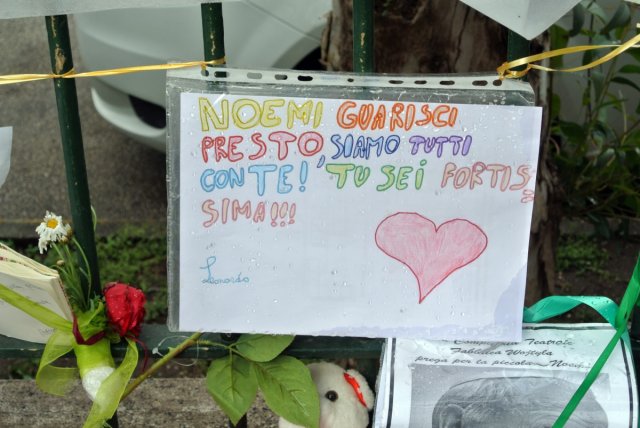 NOEMI GUARISCI
PRESTO, SIAMO TUTTI
CON TE! TU SEI FORTIS=
SIMA!!!
Leonardo
Compagnia Teatrale
Fabbrica Wojtyla
prega per la piccola... Noemi